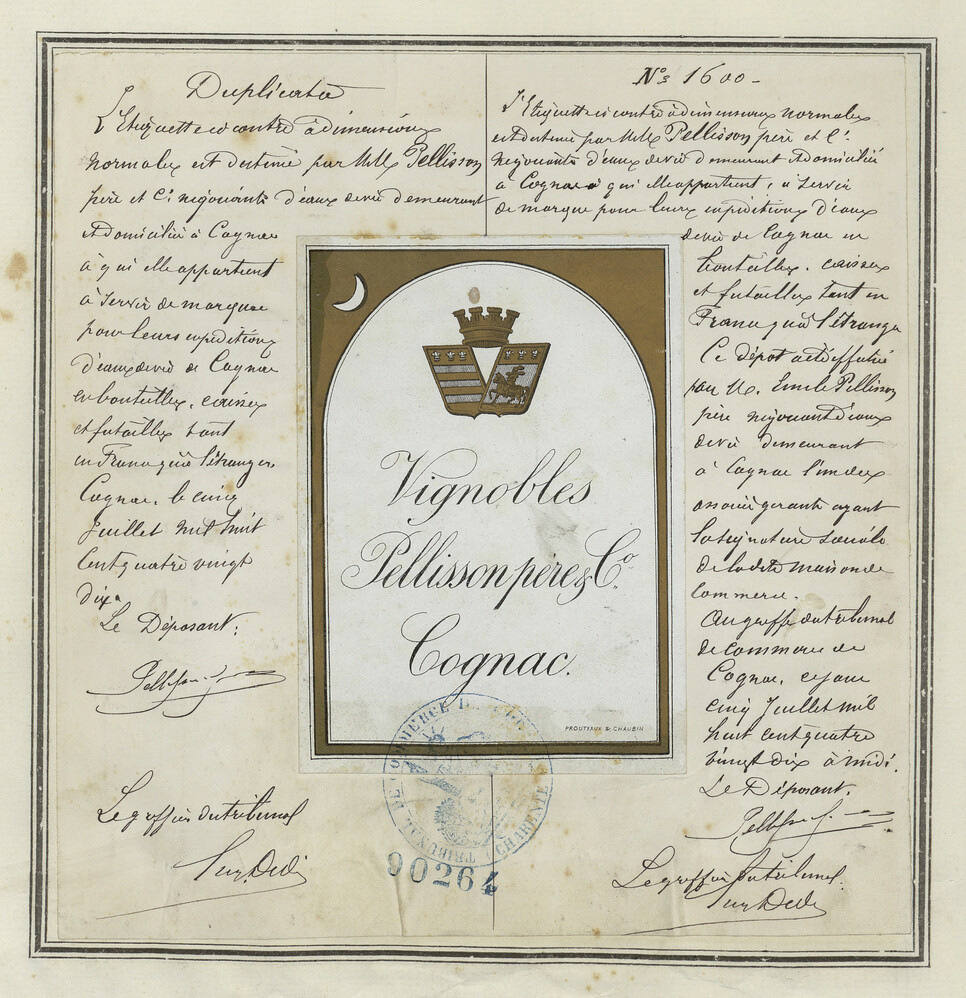 Duplicata
L'Etiquette ci contre à dimensions
normales est destiné par MM. Pellisson
père et Cie négociants d'eaux de vie demeurant
et domicilié à Cognac
à qui elle appartient
à servir de marque
pour leurs expéditions
d'eaux de vie de Cognac
en bouteilles, caisses
et futailles tant
en France qu'à l'étranger
Cognac, le cinq
Juillet mil huit
cent quatre vingt
dix.
Le Déposant:
Le greffier du tribunal
No 1600-
L'Etiquette ci contre à dimensions normales
est destiné par MM. Pellisson père et Cie
négociants d'eaux de vie demeurant et domicilié
à Cognac à qui elle appartient, à servir
de marque pour leurs expéditions d'eaux
de vie de Cognac en
bouteilles, caisses
et futailles tant en
France qu'à l'étranger
Ce dépot a été effectué
par M. Emile Pellisson
père négociant d'eaux
de vie demeurant
à Cognac l'un des
associés gerants ayant
la signature sociale
de la dite maison de
commerce.
Au greffe du tribunal
de commerce de
Cognac, ce jour
cinq Juillet mil
huit cent quatre
vingt dix à midi.
Le Déposant.
Le greffier du tribunal.
Vignobles
Pellisson père & Co.
Cognac.
PROUTEAUX & CHAUBIN
TRIBUNAL DE COMMERCE DE COGNAC
CHARENTE
90264